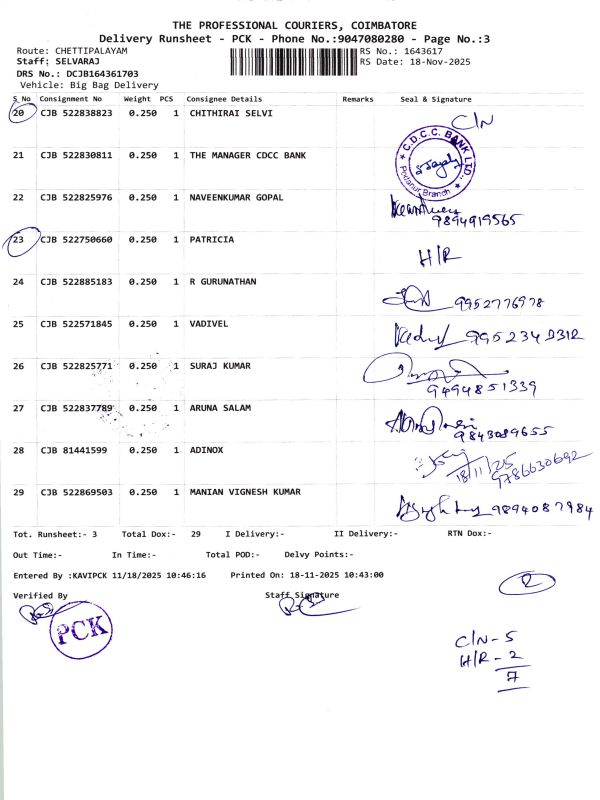 THE PROFESSIONAL COURIERS, COIMBATORE
Delivery Runsheet - PCK - Phone No.:9047080280 - Page No.:3
Route: CHETTIPALAYAM RS No.: 1643617
Staff: SELVARAJ RS Date: 18-Nov-2025
DRS No.: DCJB164361703
Vehicle: Big Bag Delivery
S_No Consignment No Weight PCS Consignee Details Remarks Seal & Signature
20 CJB 522838823 0.250 1 CHITHIRAI SELVI C/N
21 CJB 522830811 0.250 1 THE MANAGER CDCC BANK C.D.C.C. BANK LTD. Podanur Branch
22 CJB 522825976 0.250 1 NAVEENKUMAR GOPAL
9894919565
23 CJB 522750660 0.250 1 PATRICIA H/R
24 CJB 522885183 0.250 1 R GURUNATHAN
9952776978
25 CJB 522571845 0.250 1 VADIVEL
26 CJB 522825771 0.250 1 SURAJ KUMAR
9494851339
27 CJB 522837789 0.250 1 ARUNA SALAM
9843089655
28 CJB 81441599 0.250 1 ADINOX
18/11/25 9786630692
29 CJB 522869503 0.250 1 MANIAN VIGNESH KUMAR
9894087984
Tot. Runsheet:- 3 Total Dox:- 29 I Delivery:- II Delivery:- RTN Dox:-
Out Time:- In Time:- Total POD:- Delvy Points:-
Entered By :KAVIPCK 11/18/2025 10:46:16 Printed On: 18-11-2025 10:43:00
Verified By Staff Signature
PCK
C/N - 5
H/R - 2
7